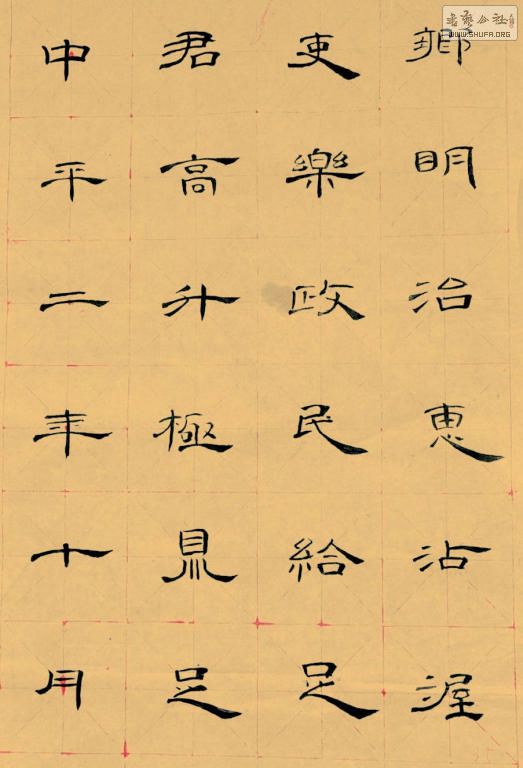 鄉明治惠沾渥
吏樂政民給足
君高升極鼎足
中平二年十月
書藝公社
WWW.SHUFA.ORG